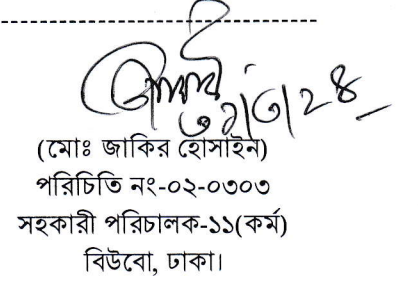 (মোঃ জাকির হোসাইন)
পরিচিতি নং-০২-০৩০৩
সহকারী পরিচালক-১১(কর্ম)
বিউবো, ঢাকা।